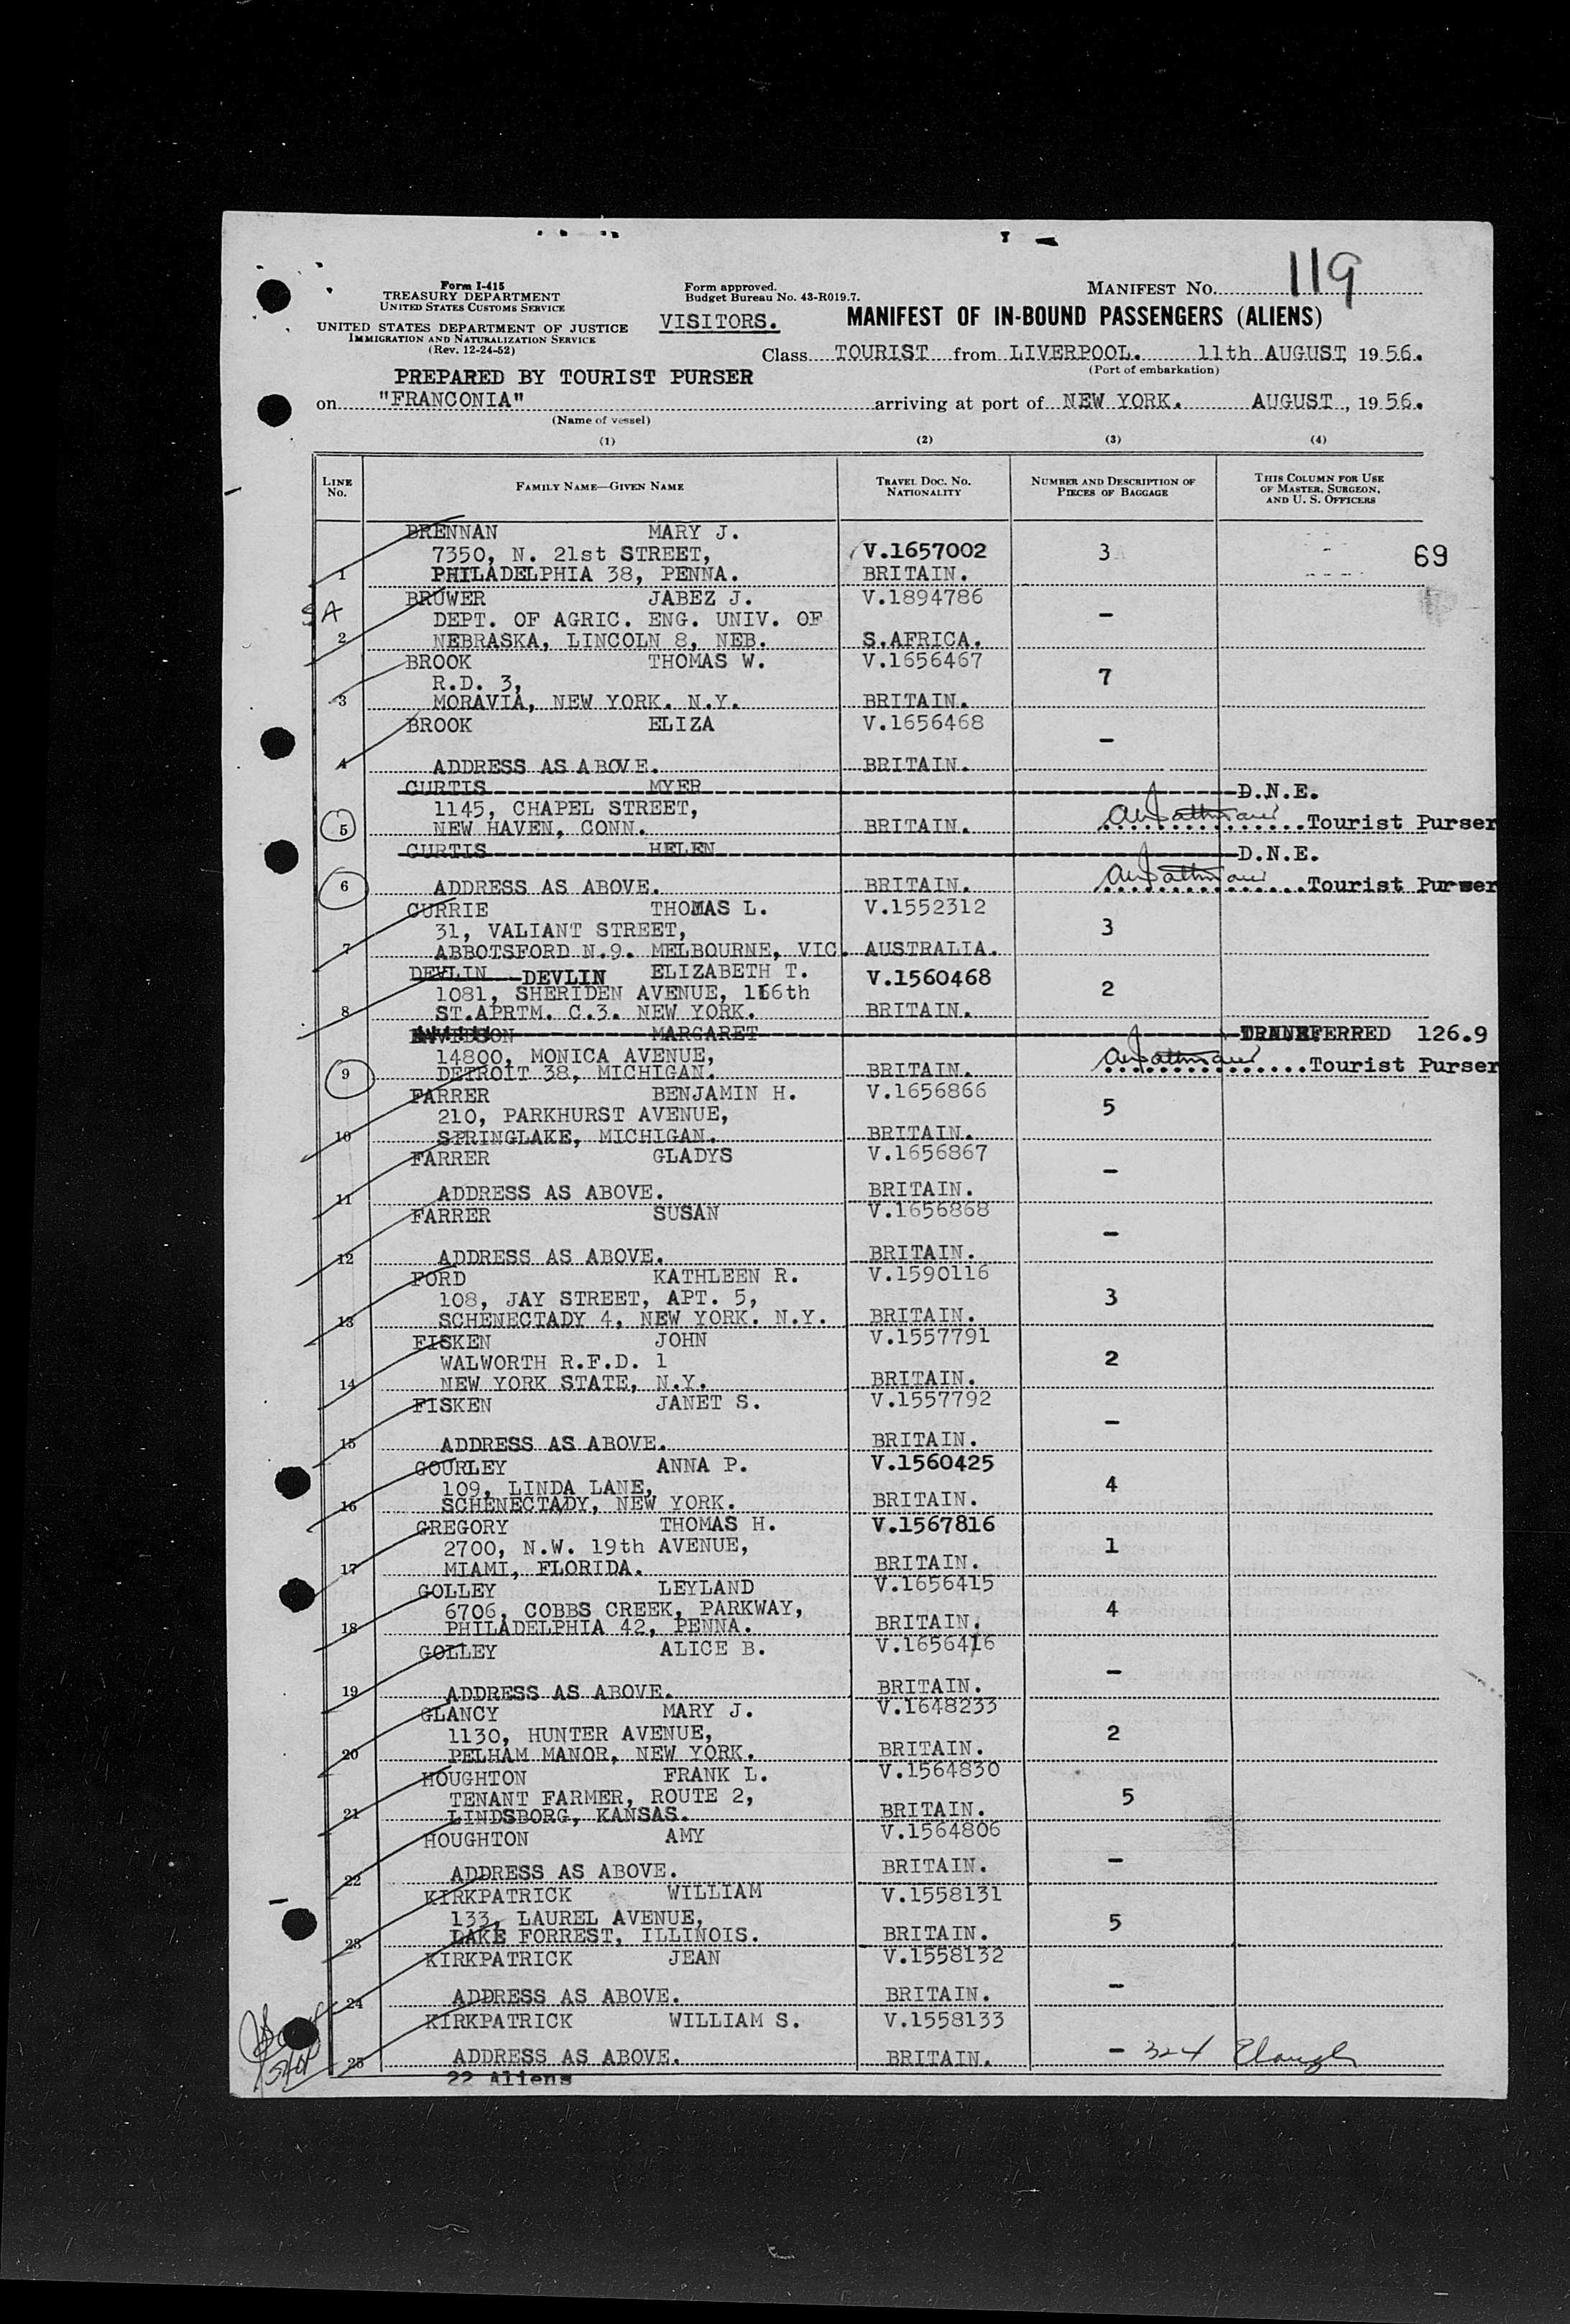 119
Form I-415
TREASURY DEPARTMENT
UNITED STATES CUSTOMS SERVICE
UNITED STATES DEPARTMENT OF JUSTICE
IMMIGRATION AND NATURALIZATION SERVICE
(Rev. 12-24-52)
Form approved.
Budget Bureau No. 43-R019.7.
VISITORS.
MANIFEST NO.
MANIFEST OF IN-BOUND PASSENGERS (ALIENS)
Class TOURIST from LIVERPOOL. 11th AUGUST, 1956.
(Port of embarkation)
PREPARED BY TOURIST PURSER
on "FRANCONIA" arriving at port of NEW YORK. AUGUST, 1956.
(Name of vessel)
(1) (2) (3) (4)
LINE NO. FAMILY NAME—GIVEN NAME TRAVEL DOC. NO. NATIONALITY NUMBER AND DESCRIPTION OF PIECES OF BAGGAGE THIS COLUMN FOR USE OF MASTER, SURGEON, AND U. S. OFFICERS
BRENNAN MARY J.
7350, N. 21st STREET, V.1657002 3 69
1 PHILADELPHIA 38, PENNA. BRITAIN.
BRUWER JABEZ J. V.1894786
SA DEPT. OF AGRIC. ENG. UNIV. OF -
2 NEBRASKA, LINCOLN 8, NEB. S.AFRICA.
BROOK THOMAS W. V.1656467
R.D. 3, 7
3 MORAVIA, NEW YORK. N.Y. BRITAIN.
BROOK ELIZA V.1656468
-
4 ADDRESS AS ABOVE. BRITAIN.
CURTIS MYER D.N.E.
1145, CHAPEL STREET,
5 NEW HAVEN, CONN. BRITAIN. Tourist Purser
CURTIS HELEN D.N.E.
6 ADDRESS AS ABOVE. BRITAIN. Tourist Purser
CURRIE THOMAS L. V.1552312
31, VALIANT STREET, 3
7 ABBOTSFORD N.9. MELBOURNE, VIC. AUSTRALIA.
DEVLIN DEVLIN ELIZABETH T. V.1560468
1081, SHERIDEN AVENUE, 166th 2
8 ST.APRTM. C.3. NEW YORK. BRITAIN.
DAVIDSON MARGARET TRANSFERRED 126.9
14800, MONICA AVENUE,
9 DETROIT 38, MICHIGAN. BRITAIN. Tourist Purser
FARRER BENJAMIN H. V.1656866
210, PARKHURST AVENUE, 5
10 SPRINGLAKE, MICHIGAN. BRITAIN.
FARRER GLADYS V.1656867
-
11 ADDRESS AS ABOVE. BRITAIN.
FARRER SUSAN V.1656868
-
12 ADDRESS AS ABOVE. BRITAIN.
FORD KATHLEEN R. V.1590116
108, JAY STREET, APT. 5, 3
13 SCHENECTADY 4, NEW YORK. N.Y. BRITAIN.
FISKEN JOHN V.1557791
WALWORTH R.F.D. 1 2
14 NEW YORK STATE, N.Y. BRITAIN.
FISKEN JANET S. V.1557792
-
15 ADDRESS AS ABOVE. BRITAIN.
GOURLEY ANNA P. V.1560425
109, LINDA LANE, 4
16 SCHENECTADY, NEW YORK. BRITAIN.
GREGORY THOMAS H. V.1567816
2700, N.W. 19th AVENUE, 1
17 MIAMI, FLORIDA. BRITAIN.
GOLLEY LEYLAND V.1656415
6706, COBBS CREEK, PARKWAY, 4
18 PHILADELPHIA 42, PENNA. BRITAIN.
GOLLEY ALICE B. V.1656416
-
19 ADDRESS AS ABOVE. BRITAIN.
GLANCY MARY J. V.1648233
1130, HUNTER AVENUE, 2
20 PELHAM MANOR, NEW YORK. BRITAIN.
HOUGHTON FRANK L. V.1564830
TENANT FARMER, ROUTE 2, 5
21 LINDSBORG, KANSAS. BRITAIN.
HOUGHTON AMY V.1564806
-
22 ADDRESS AS ABOVE. BRITAIN.
KIRKPATRICK WILLIAM V.1558131
133, LAUREL AVENUE, 5
23 LAKE FORREST, ILLINOIS. BRITAIN.
KIRKPATRICK JEAN V.1558132
-
24 ADDRESS AS ABOVE. BRITAIN.
KIRKPATRICK WILLIAM S. V.1558133
25 ADDRESS AS ABOVE. BRITAIN. - 324
22 Aliens